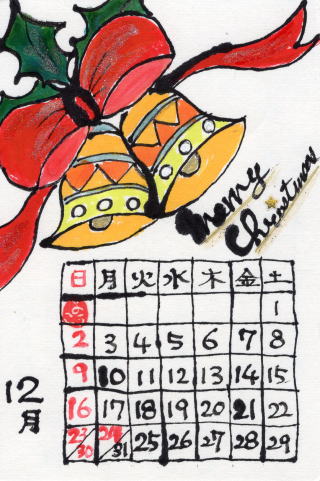 Merry
Christmas
日 月 火 水 木 金 土
1
2 3 4 5 6 7 8
9 10 11 12 13 14 15
16 17 18 19 20 21 22
23/30 24/31 25 26 27 28 29
12
月